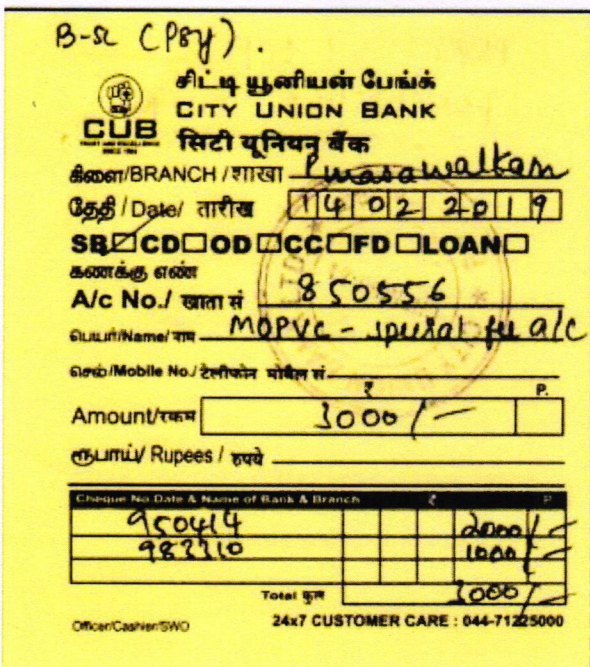 B-SC (PSY).
சிட்டி யூனியன் பேங்க்
CUB CITY UNION BANK
TRUST AND EXCELLENCE SINCE 1904
सिटी यूनियन बैंक
கிளை/BRANCH/शाखा Purasawalkam
தேதி / Date/ तारीख 14 02 2019
SB☑CD☐OD☐CC☐FD☐LOAN☐
கணக்கு எண்
A/c No./ खाता सं 850556
பெயர்/Name/नाम MOPVC - special fee a/c
செல்/Mobile No./टेलीफोन मोबैल सं
₹ P.
Amount/रकम 3000/-
ரூபாய்/ Rupees / रुपये
Cheque No.Date & Name of Bank & Branch ₹ P.
950414 2000/-
983310 1000/-
Total कुल 3000/-
Officer/Cashier/SWO 24x7 CUSTOMER CARE : 044-71225000